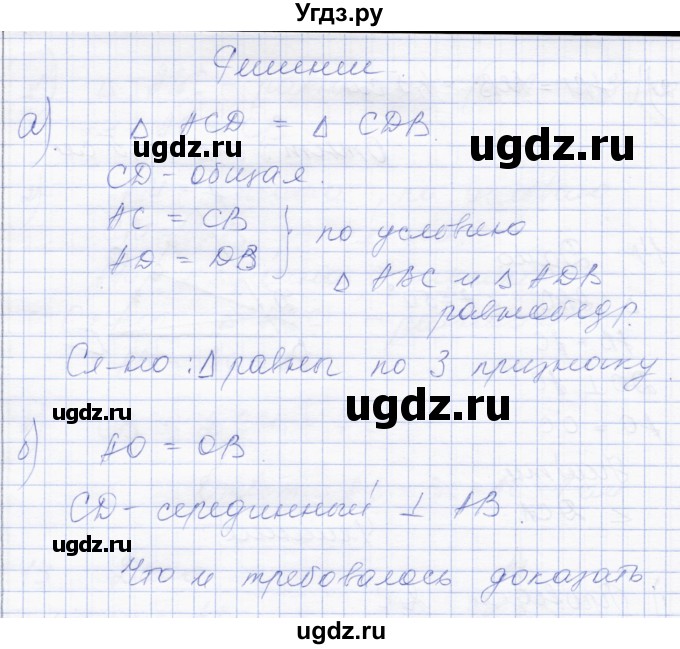 Угдз.ру
Решение
а). Δ ACD = Δ CDB.
ugdz.ru ugdz.ru
CD - общая.
AC = CB
AD = DB } по условию
Δ ABC и Δ ADB
равнобедр.
Сл-но: Δ равны по 3 признаку.
ugdz.ru ugdz.ru
б) AO = OB
CD - серединный ⊥ AB.
ugdz.ru
Что и требовалось доказать.
ugdz.ru